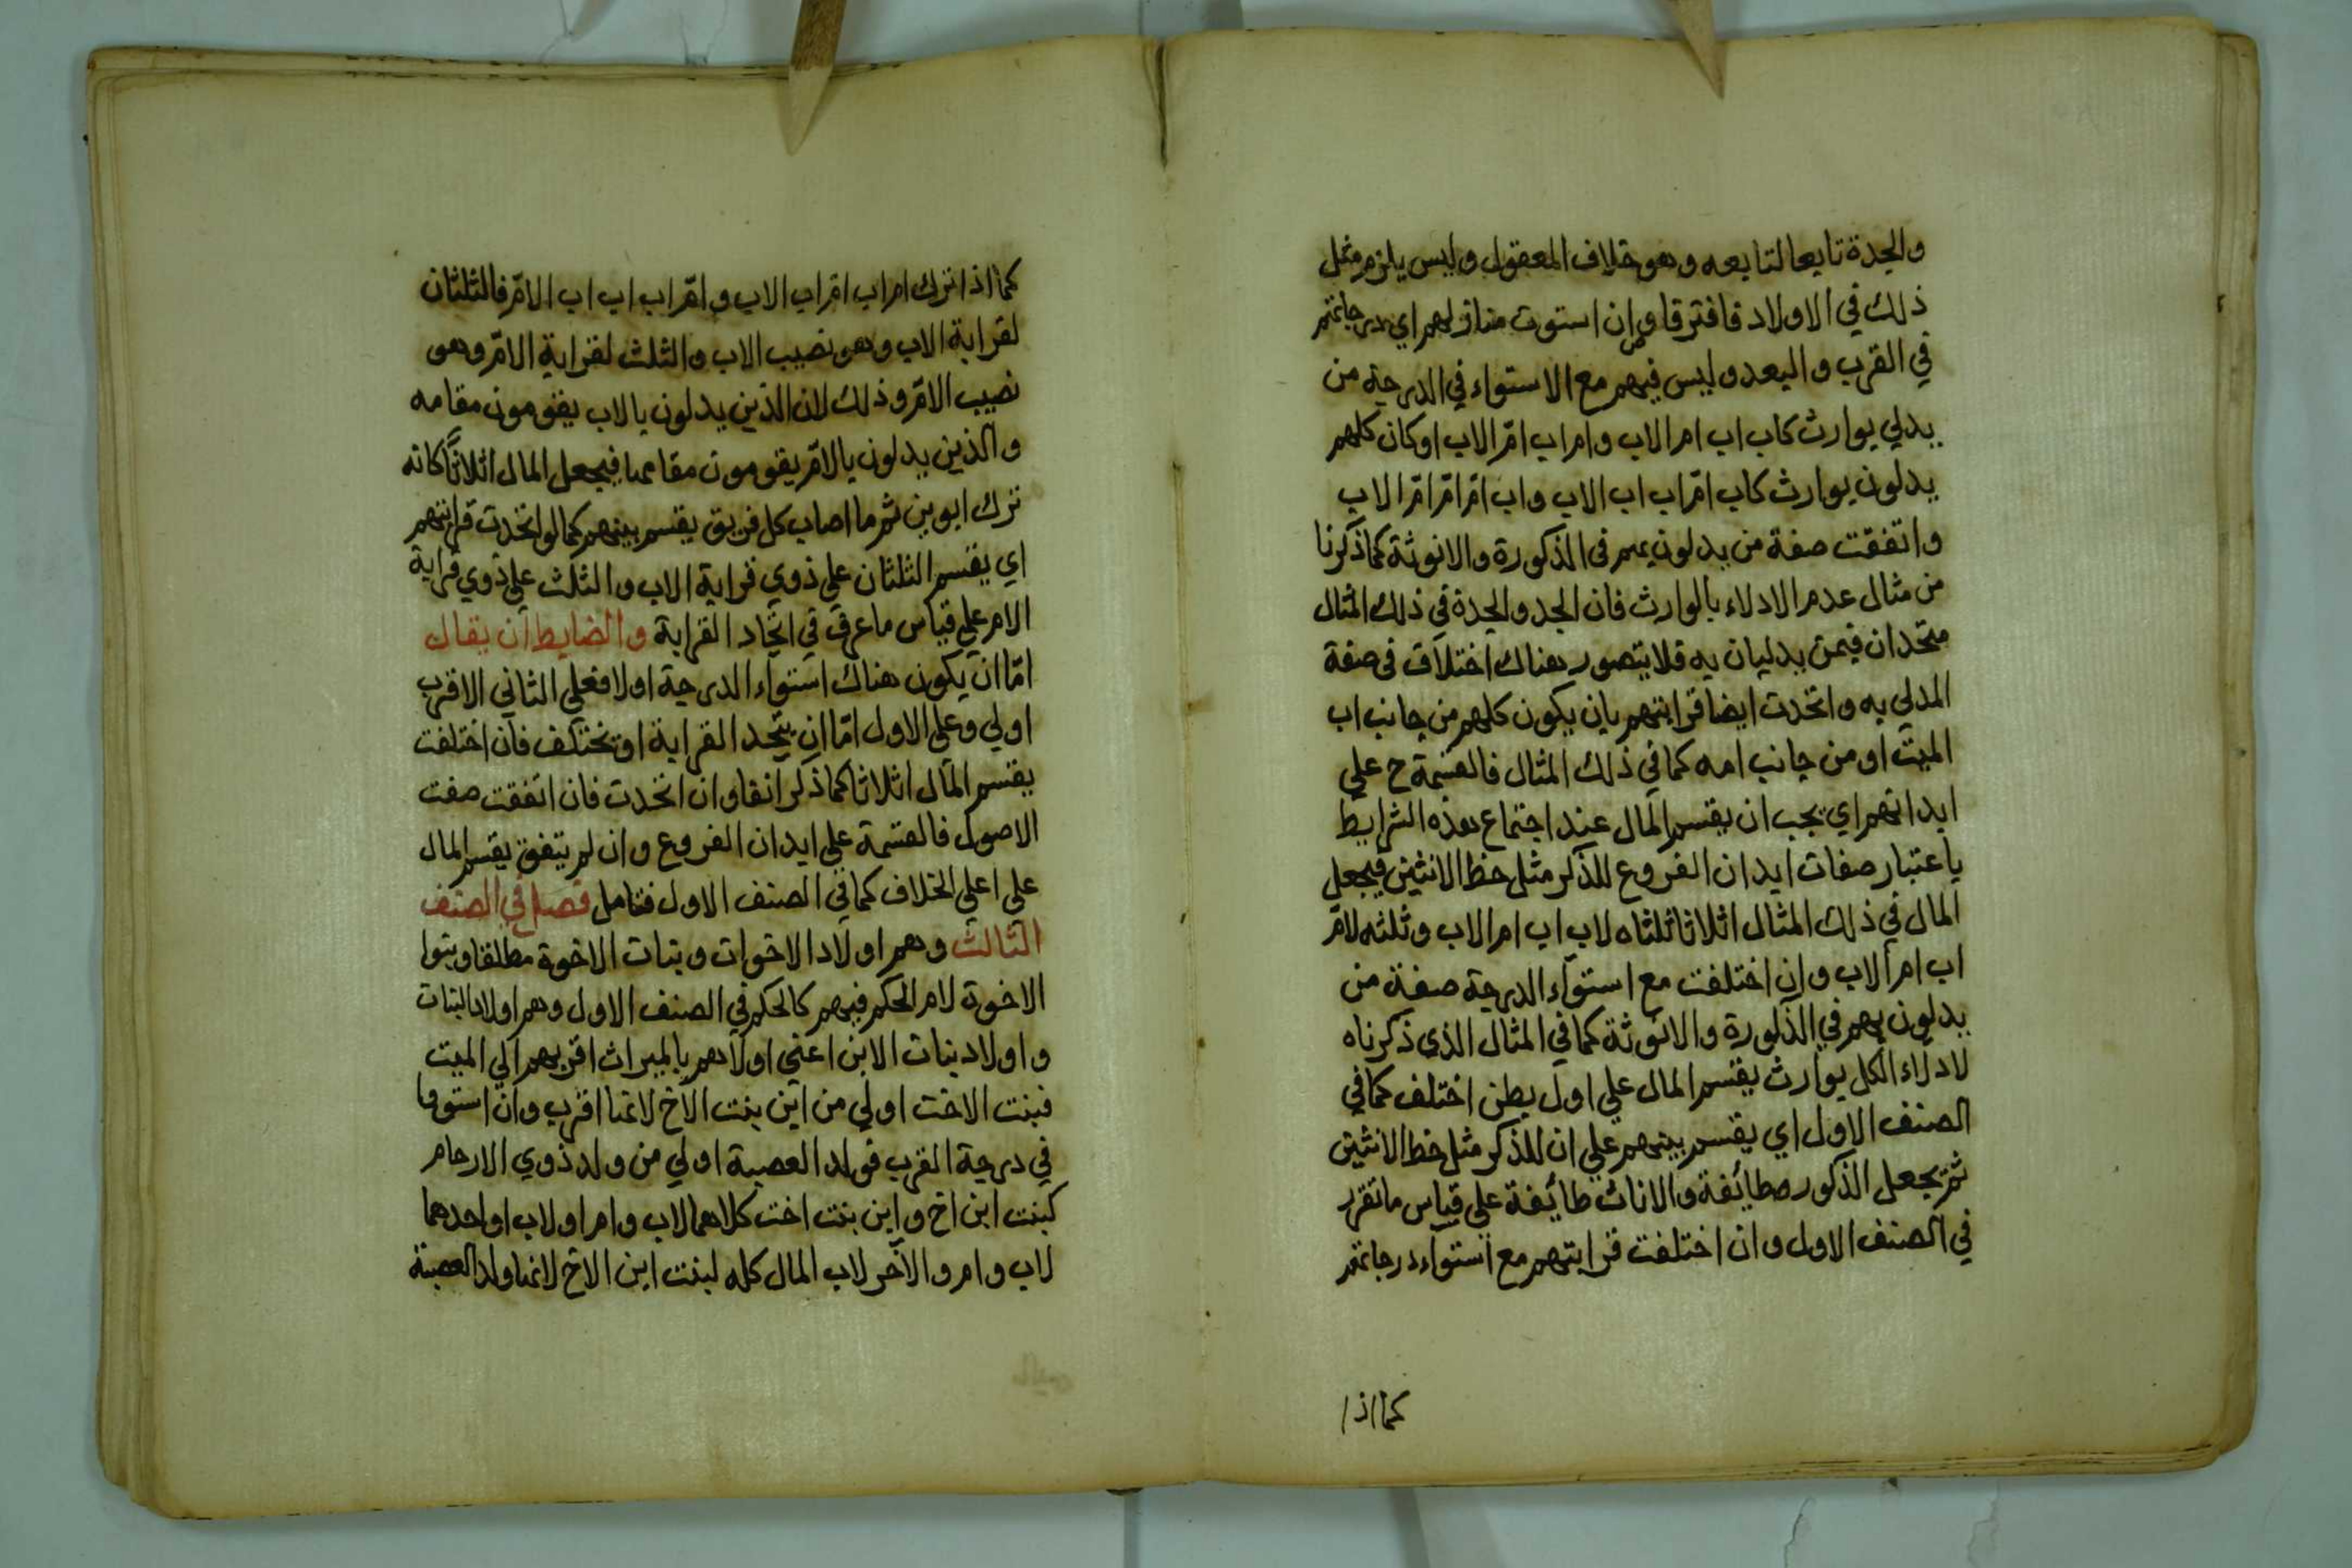 والجدة تابعا لتابعه وهو خلاف المعقول وليس يلزم مثل
ذلك في الاولاد فافترقا وان استوت منازلهم اي درجاتهم
في القرب والبعد وليس فيهم مع الاستواء في الدرجة من
يدلي بوارث كاب اب ام الاب وام اب امّ الاب او كان كلهم
يدلون بوارث كاب امّ اب اب الاب واب امّ امّ امّ الاب
واتفقت صفة من يدلون بهم في الذكورة والانوثة كما ذكرنا
من مثال عدم الادلاء بالوارث فان الجد والجدة في ذلك المثال
متحدان فيمن يدليان به فلا يتصور هناك اختلاف في صفة
المدلي به واتحدت ايضا قرابتهم بان يكون كلهم من جانب اب
الميت او من جانب امه كما في ذلك المثال فالقسمة ح علي
ابدانهم اي يجب ان يقسم المال عند اجتماع هذه الشرايط
باعتبار صفات ابدان الفروع للذكر مثل حظ الانثيين فيجعل
المال في ذلك المثال اثلاثا ثلثاه لاب اب ام الاب وثلثه لامّ
اب ام الاب وان اختلفت مع استواء الدرجة صفة من
يدلون بهم في الذكورة والانوثة كما في المثال الذي ذكرناه
لادلاء الكل بوارث يقسم المال علي اول بطن اختلف كما في
الصنف الاول اي يقسم بينهم علي ان للذكر مثل حظ الانثيين
ثمّ يجعل الذكور طائفة والاناث طائفة علي قياس ما تقرر
في الصنف الاول وان اختلفت قرابتهم مع استواء درجاتهم
كما اذا
كما اذا ترك ام اب امّ اب الاب وامّ اب اب اب الامّ فالثلثان
لقرابة الاب وهو نصيب الاب والثلث لقرابة الامّ وهو
نصيب الامّ وذلك لان الذين يدلون بالاب يقومون مقامه
والذين يدلون بالامّ يقومون مقامها فيجعل المال اثلاثاً كانه
ترك ابوين ثم ما اصاب كل فريق يقسم بينهم كما لو اتحدت قرابتهم
اي يقسم الثلثان علي ذوي قرابة الاب والثلث علي ذوي قرابة
الام علي قياس ما عرف في اتحاد القرابة والضابط ان يقال
امّا ان يكون هناك استواء الدرجة اولا فعلي الثاني الاقرب
اولي وعلي الاول امّا ان يتحد القرابة او تختلف فان اختلفت
يقسم المال اثلاثا كما ذكر انفا وان اتحدت فان اتفقت صفت
الاصول فالقسمة علي ابدان الفروع وان لم يتفق يقسم المال
علي اعلي الخلاف كما في الصنف الاول فتامل فصل في الصنف
الثالث وهم اولاد الاخوات وبنات الاخوة مطلقا وبنوا
الاخوة لام الحكم فيهم كالحكم في الصنف الاول وهم اولاد البنات
واولاد بنات الابن اعني اولاهم بالميراث اقربهم الي الميت
فبنت الاخت اولي من ابن بنت الاخ لانها اقرب وان استووا
في درجة القرب فولد العصبة اولي من ولد ذوي الارحام
كبنت ابن اخ وابن بنت اخت كلاهما لاب وام او لاب او احدهما
لاب وام والاخر لاب المال كله لبنت ابن الاخ لانها ولد العصبة